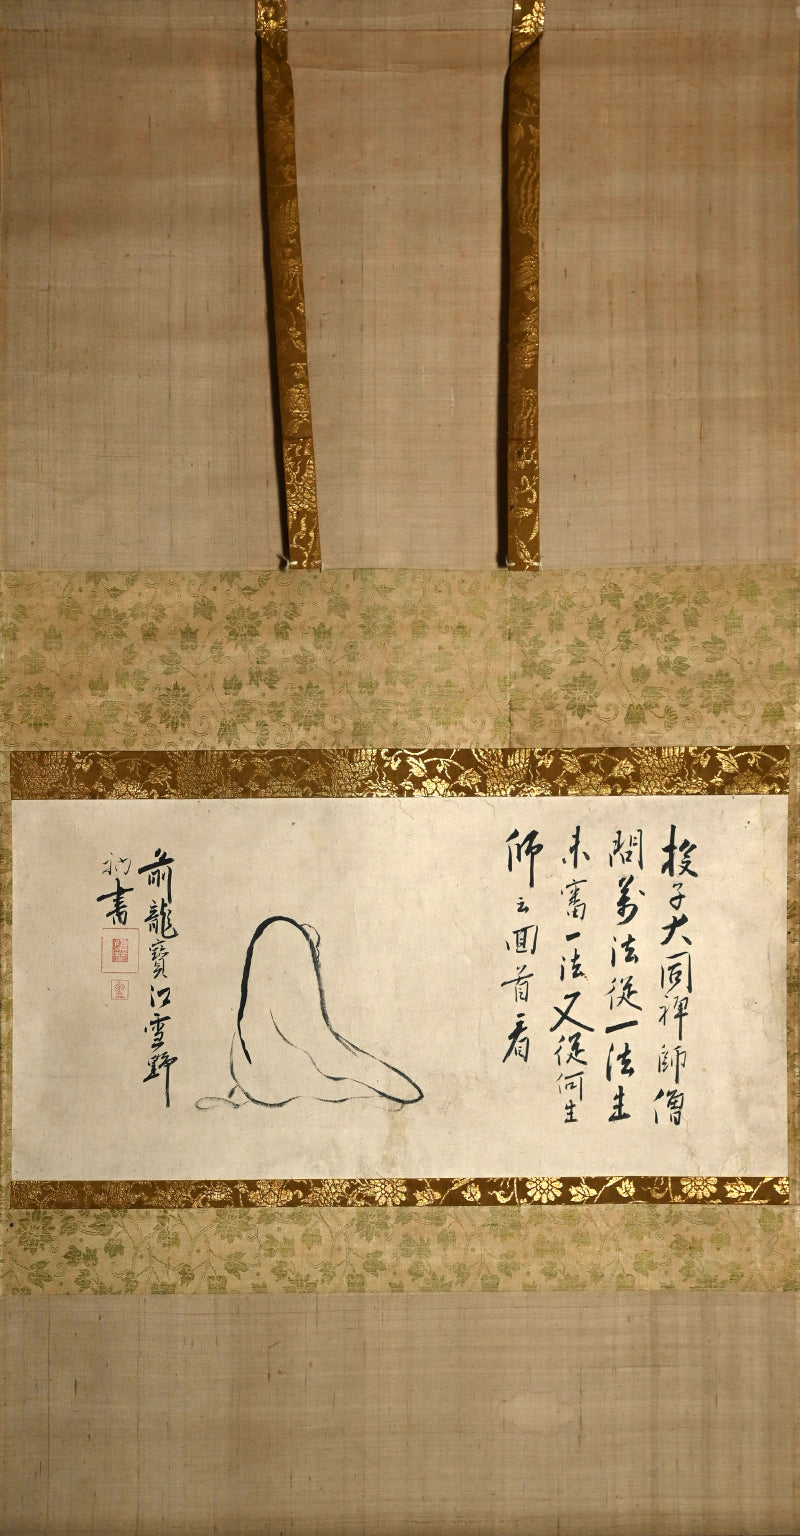 投子大同禅師僧
問萬法從一法生
未審一法又從何生
師云回首看
前龍寶江雪野
衲書